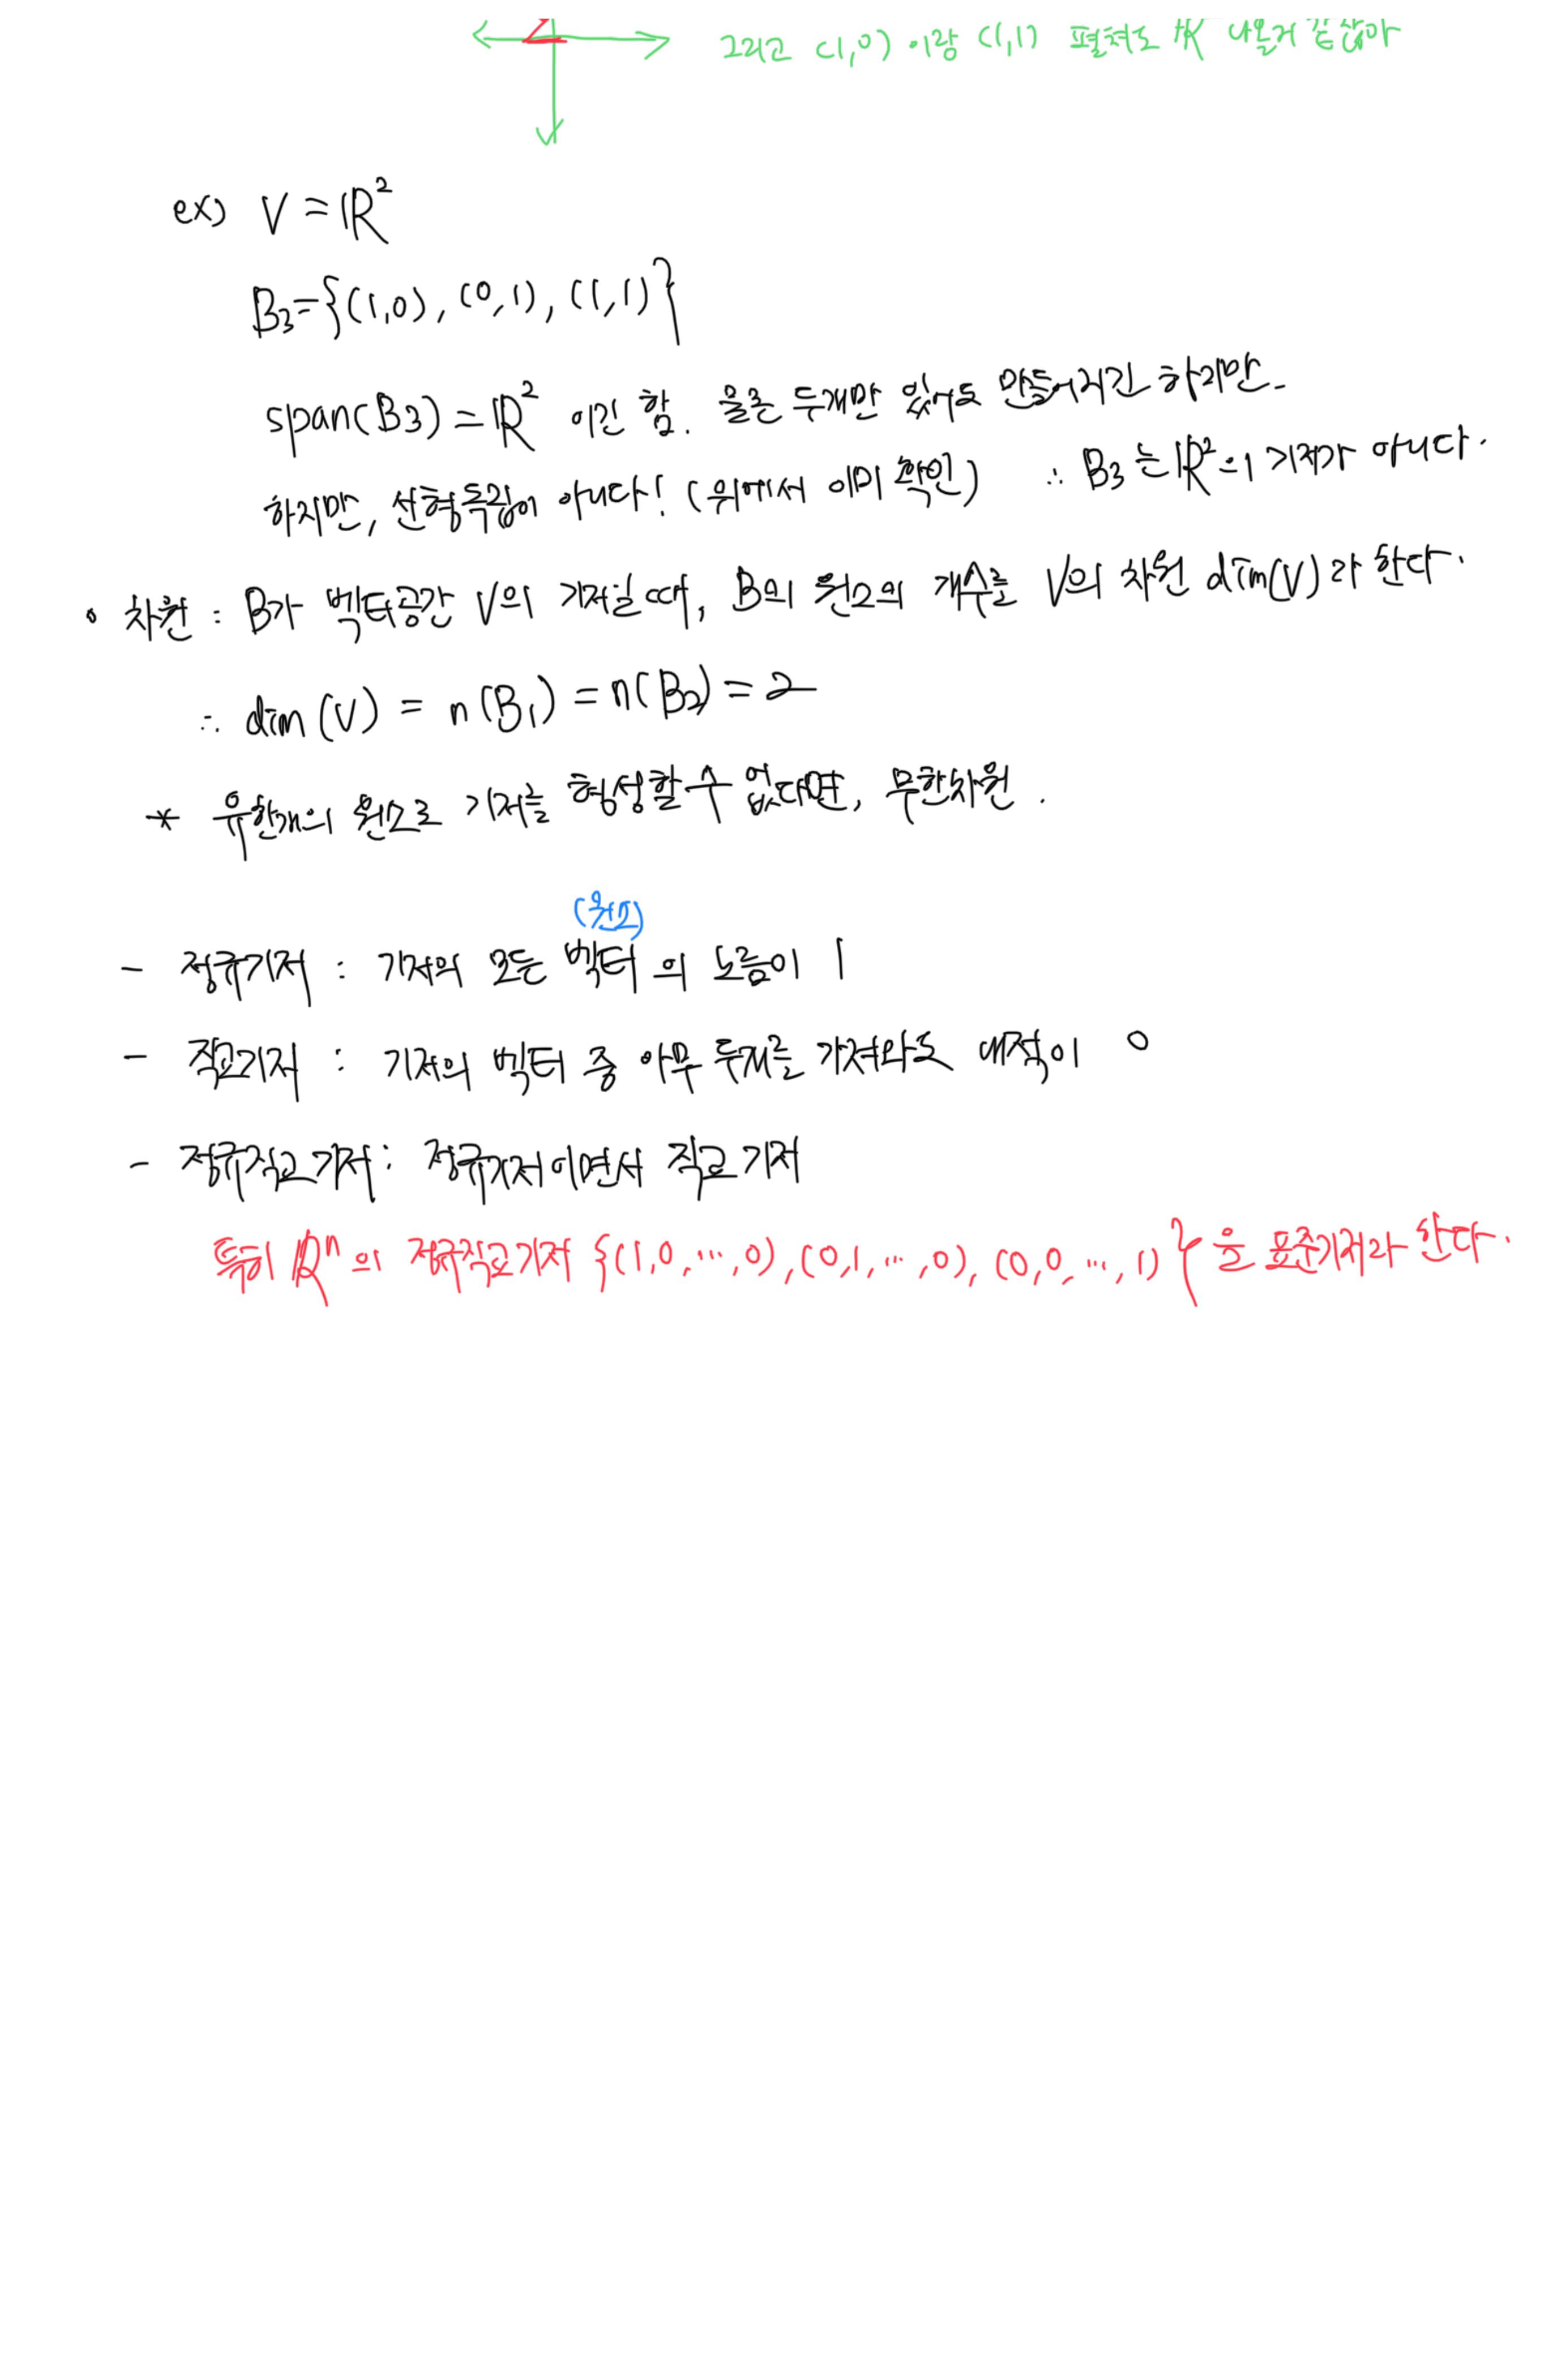 그리고 (1,0) 이랑 (1,1) 펼쳐도 ℝ 나올거 같잖아
ex) V = ℝ²
B₃={(1,0), (0,1), (1,1)}
span(B₃) = ℝ² 이긴 함. 물론 두개만 있어도 만들어지긴 하지만.
하지만, 선형독립이 아니다! (위에서 이미 확인) ∴ B₃는 ℝ²의 기저가 아니다.
◦ 차원 : B가 벡터공간 V의 기저일 때, B의 원소의 개수를 V의 차원 dim(V)라 한다.
∴ dim(V) = n(B₁) = n(B₂) = 2
* 유한개의 원소로 기저를 형성할 수 없다면, 무한차원.
(원소)
- 정규기저 : 기저의 모든 벡터의 노름이 1
- 직교기저 : 기저의 벡터 중 아무 두개를 가져와도 내적이 0
- 정규직교기저 : 정규기저이면서 직교기저
특히 ℝⁿ의 정규직교기저 {(1,0,…,0), (0,1,…,0), (0,0,…,1)} 을 표준기저라 한다.